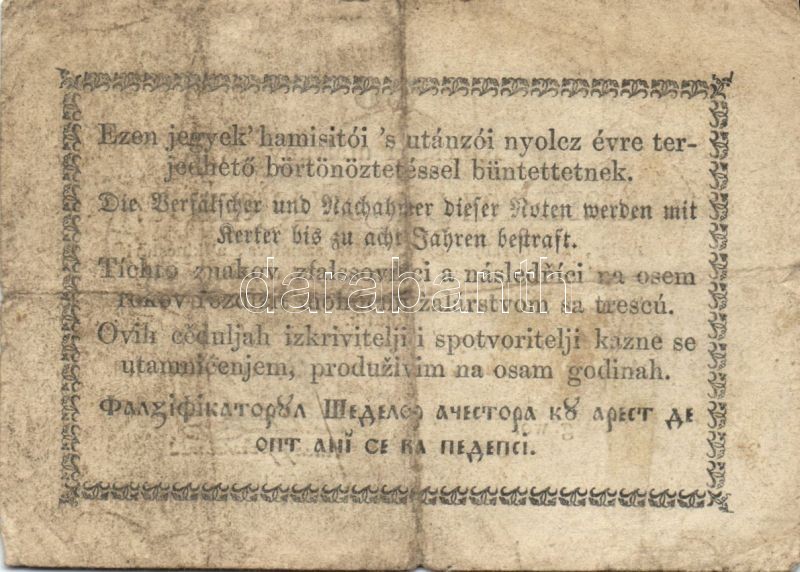 Ezen jegyek' hamisitói 's utánzói nyolcz évre ter-
jedhető börtönöztetéssel büntettetnek.
Die Verfälscher und Nachahmer dieser Noten werden mit
Kerker bis zu acht Jahren bestraft.
Tíchto znakov zfalssovňíci a následňíci na osem
rokov žalárstvom sa trescú.
Ovih cěduljah izkrivitelji i spotvoritelji kazne se
utamničenjem, produživim na osam godinah.
Фалѕіфікаторꙋл Шеделор ачестора кꙋ арест де
опт анĭ се ва педепсі.
darabanth